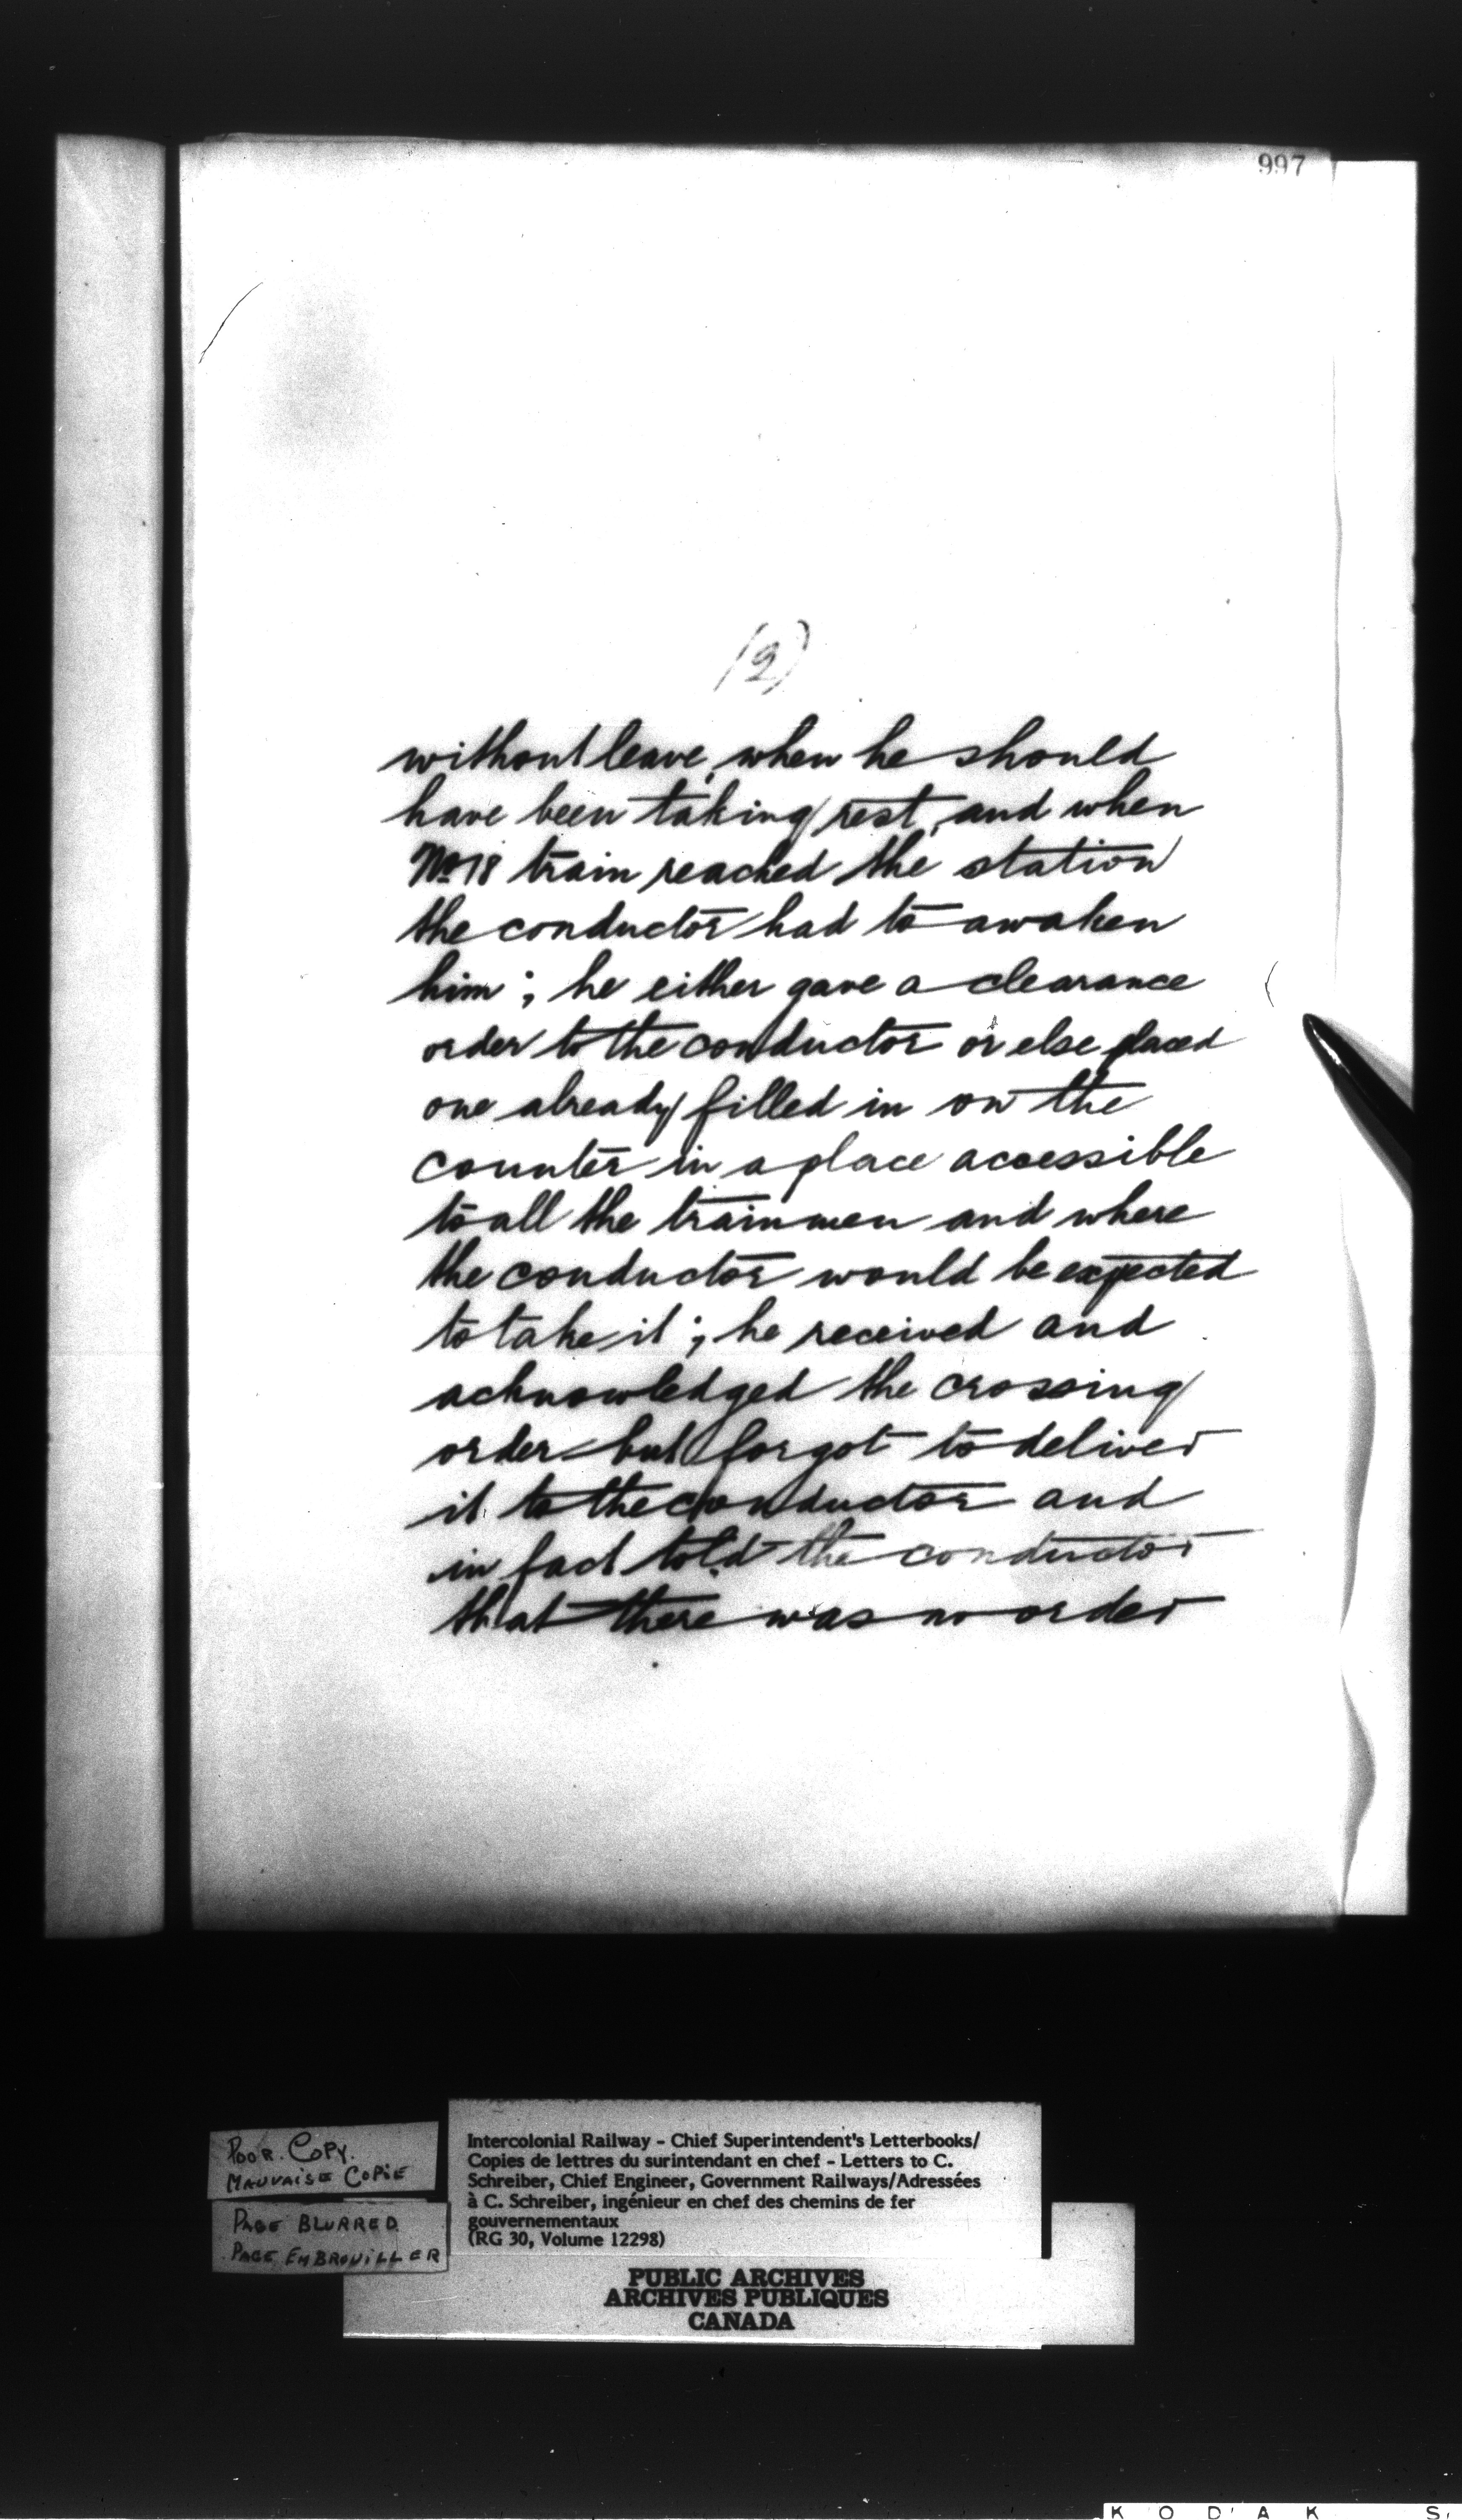 997
(2)
without leave, when he should
have been taking rest, and when
No 18 train reached the station
the conductor had to awaken
him; he either gave a clearance
order to the conductor or else placed
one already filled in on the
counter in a place accessible
to all the trainmen and where
the conductor would be expected
to take it; he received and
acknowledged the crossing
order but forgot to deliver
it to the conductor and
in fact told the conductor
that there was no order
POOR. COPY.
MAUVAISE COPIE
PAGE BLURRED
PAGE EMBROUILLER
Intercolonial Railway - Chief Superintendent's Letterbooks/
Copies de lettres du surintendant en chef - Letters to C.
Schreiber, Chief Engineer, Government Railways/Adressées
à C. Schreiber, ingénieur en chef des chemins de fer
gouvernementaux
(RG 30, Volume 12298)
PUBLIC ARCHIVES
ARCHIVES PUBLIQUES
CANADA
KODAK S